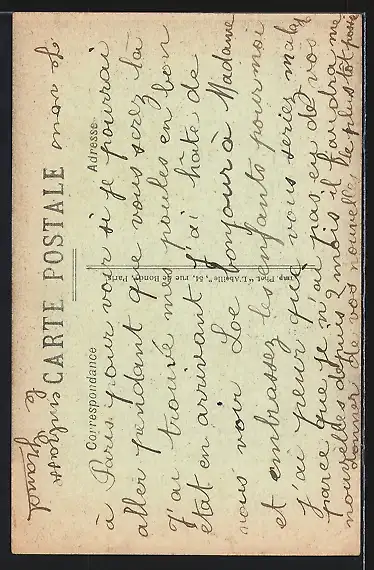 Je vous
CARTE POSTALE
embrasse
le Grand
Correspondance
Adresse
à Paris pour voir si je pourrai
aller pendant que vous serez là
J'ai trouvé mes poules en bon
état en arrivant J'ai hâte de
vous voir Loe bonjour à Madame
et embrassez les enfants pour moi
J'ai peur que vous seriez malade
parce que je n'ai pas eu de vos
nouvelles depuis 2 mois il faudra me
donner de vos nouvelles le plus tôt possible
Imp. Phot "L'Abeille", 54, rue de Bondy, Paris